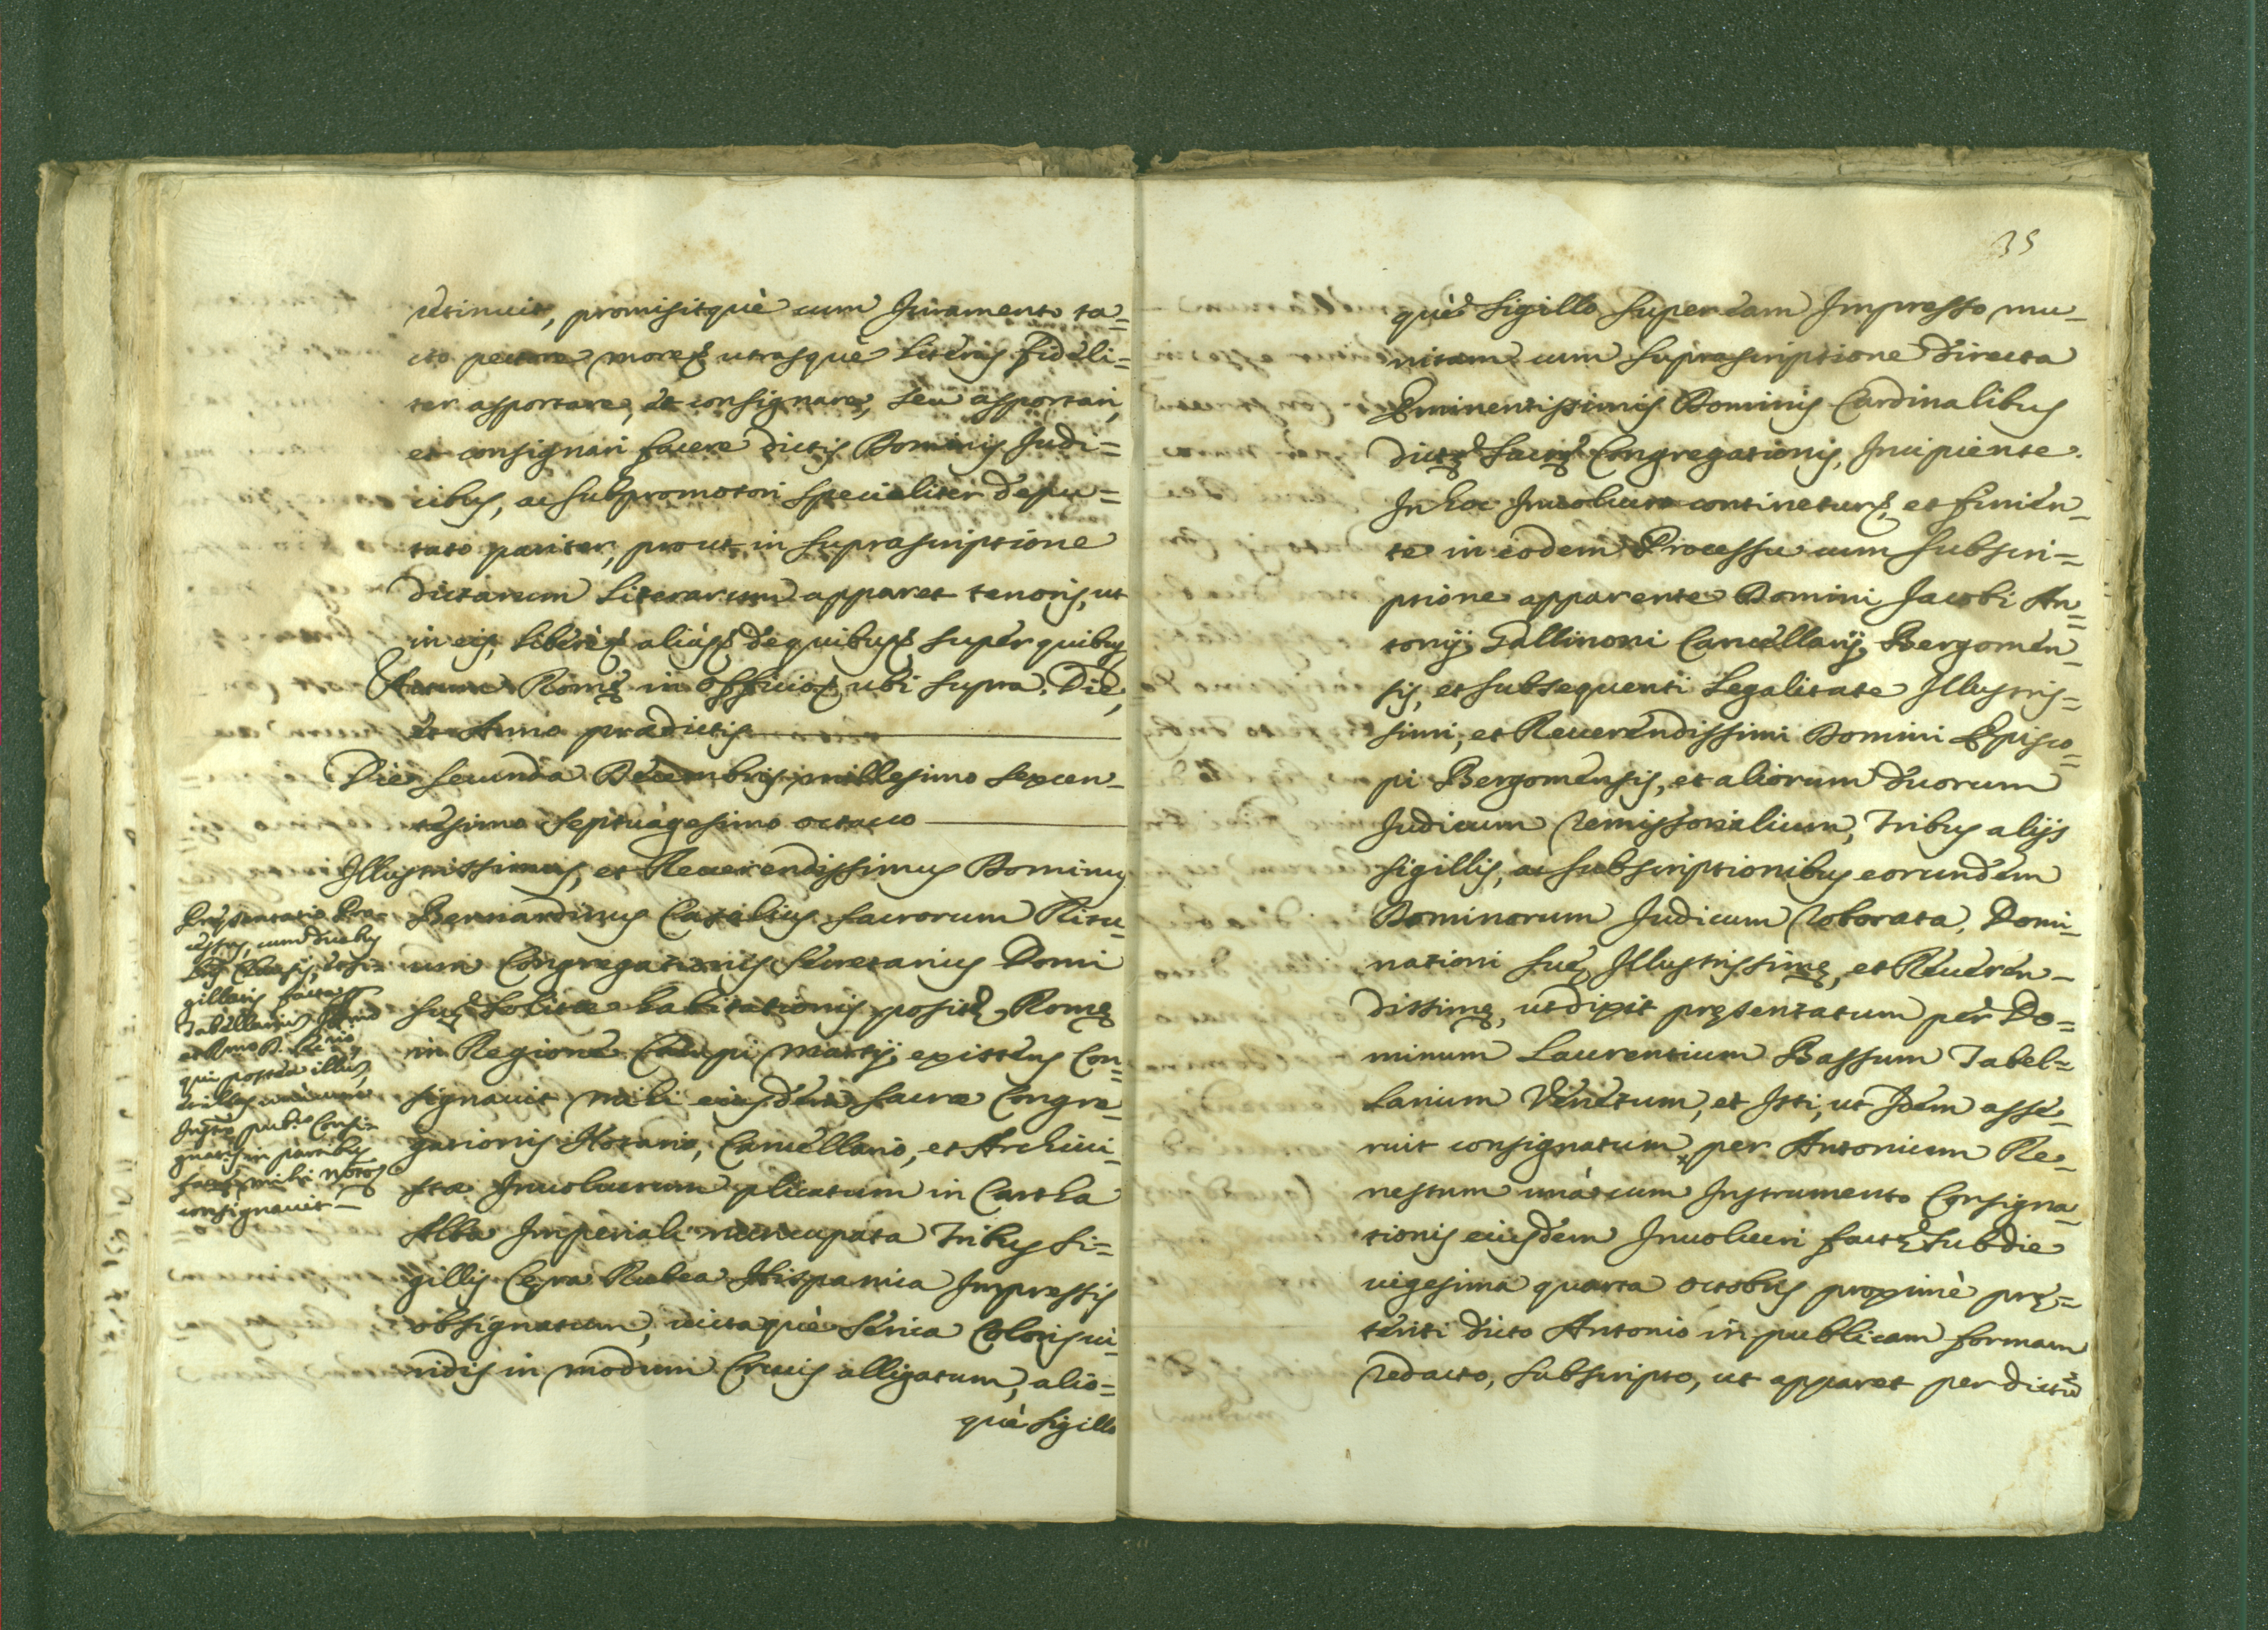 retinuit, promisitquè cum Juramento ta=
cto pectore more utrasquè literas fideli=
ter asportare, et consignare, seu asportari,
et consignari facere dictis Dominis Judi=
cibus, ac subpromotori specialiter depu=
tato pariter, prout in suprascriptione
dictarum literarum apparet tenoris, ut
in eis, liberè alias de quibus super quibus
Actum Romę in officio ubi supra. Die,
et Anno prædictis
Die secunda Decembris millesimo sexcen-
tesimo septuagesimo octauo
Illustrissimus, et Reuerendissimus Dominus
Bernardinus Casalius sacrorum Ritu-
um Congregationis secretarius Domi
suę solitæ habitationis positę Romę
in Regione Campi Martij existens con=
signauit mihi eiusdem sacræ Congre-
gationis Notario, Cancellario, et Archiui-
stæ Inuolucrum plicatum in Cartha
Alba Imperiali nuncupata Tribus si=
gillis Cęra Rubea Hispanica Impressis
obsignatum, uictaquè serica Coloris ui-
ridis in modum Crucis alligatum, alio=
què sigillo
Pręsentatio Pro-
cessus, cum duabus
clausis, et si-
gillatis facta
Tabellarium
et Rmo D. Secrio,
qui postea illum,
Instro publo Consi-
gnatis in paribus
mihi Notos
consignauit
35
què sigillo super eam Impresso mu-
nitam cum suprascriptione directa
Eminentissimis Dominis Cardinalibus
dictę sacrę Congregationis, Incipiente.
In hoc Inuolucro continetur, et finien-
te in eodem Processu cum subscri=
ptione apparente Domini Jacobi An=
tonij Gallinoni Cancellarij Bergomen-
sis, et subsequenti legalitate Illustris=
simi, et Reuerendissimi Domini Episco=
pi Bergomensis, et aliorum duorum
Judicum remissorialium, Tribus alijs
sigillis, ac subscriptionibus eorundem
Dominorum Judicum roborata, Domi-
nationi suę Illustrissimę, et Reueren-
dissimę, ut dixit pręsentatum per Do=
minum Laurentium Bassum Tabel=
larium Venetum, et Isti, ut Idem asse-
ruit consignatum per Antonium Re-
nestum unà cum Instrumento Consigna-
tionis eiusdem Inuolucri factę sub die
uigesima quarta octobris proximè prę=
teriti dicto Antonio in publicam formam
redacto, subscripto, ut apparet per dictũ